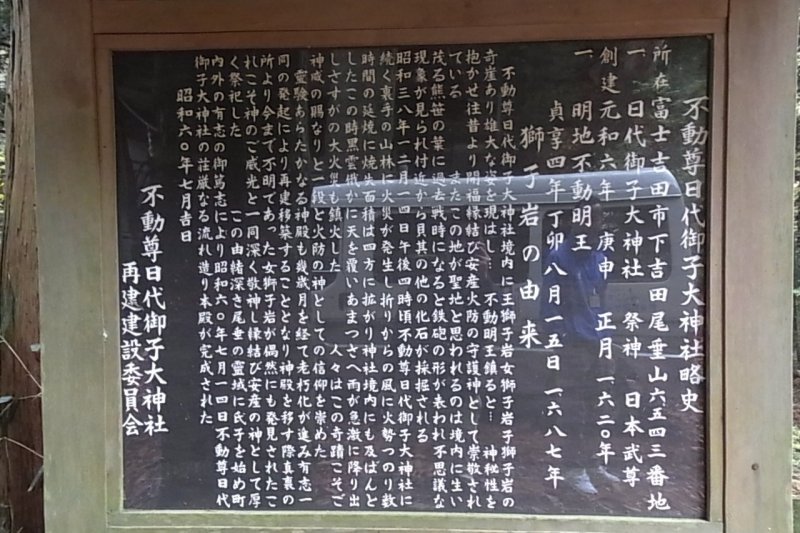 不動尊日代御子大神社略史
所在富士吉田市下吉田尾垂山六五四三番地
一 日代御子大神社 祭神 日本武尊
創建元和六年 庚申 正月 一六二〇年
一 明地不動明王
貞享四年丁卯八月一五日 一六八七年
獅子岩の由来
不動尊日代御子大神社境内に王獅子岩女獅子岩子獅子岩の
奇崖あり雄大な姿を現はし… 不動明王鎮ると… 神秘性を
抱かせ往昔より開福縁結び安産火防の守護神として崇敬され
ている またこの地が聖地と思われるのは境内に生い
茂る熊笹の葉に過去戦時になると鉄砲の形が表われ不思議な
現象が見られ付近から貝其の他の化石が採掘される
昭和三八年一二月一四日午後四時頃不動尊日代御子大神社に
続く裏手の山林に火災が発生し折りからの風に火勢つのり数
時間の延焼に焼失面積は四方に拡がり神社境内にも及ばんと
したこの時黒雲俄かに天を覆いあまつさへ雨が急激に降り出
しさすがの大火災も鎮火した 人々はこの奇蹟こそご
神威の賜なりと一段と火防の神としての信仰を崇めた
霊験あらたかなる神殿も幾歳月を経て老朽化が進み有志一
同の発起により再建移築することとなり神殿を移す際真裏の
所より今まで不明であった女獅子岩が偶然にも発見されたこ
れこそ神のご威光と一同深く敬神し縁結び安産の神として厚
く祭祀した この由緒深き尾垂の霊域に氏子を始め町
内外の有志の御篤志により昭和六〇年七月一四日不動尊日代
御子大神社の荘厳なる流れ造り本殿が完成された
昭和六〇年七月吉日
不動尊日代御子大神社
再建建設委員会